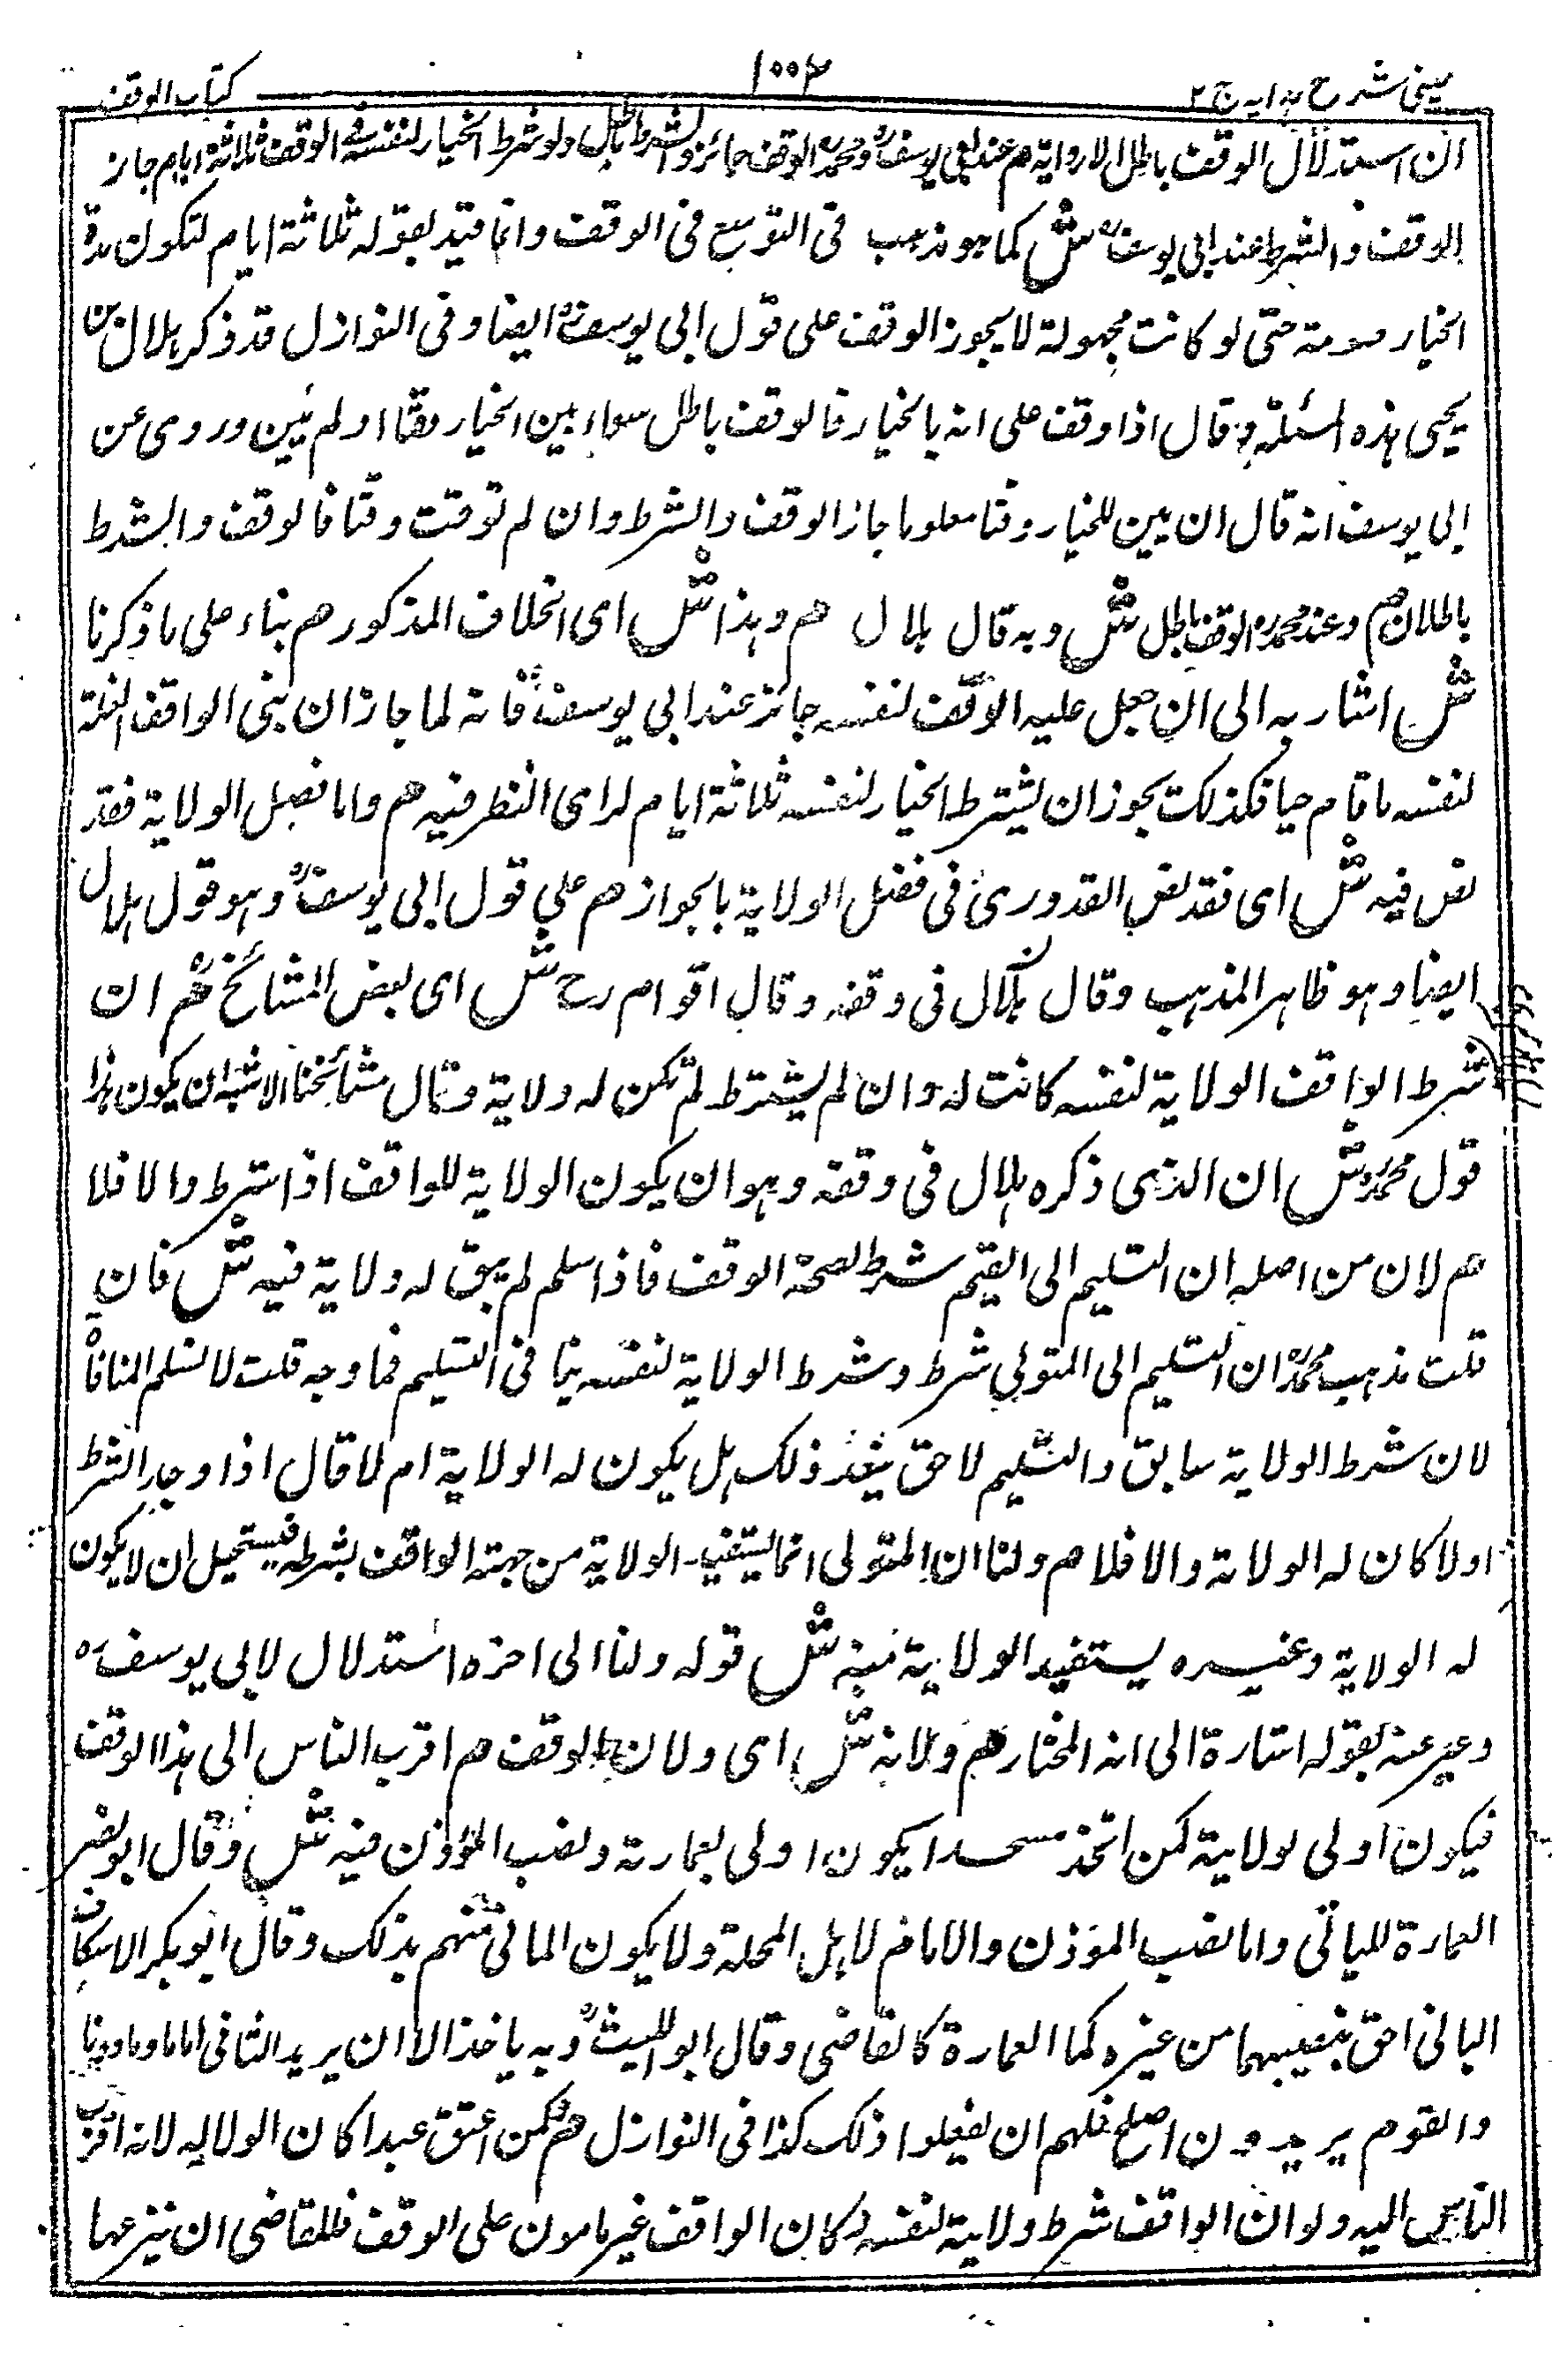 عینی شرح ہدایہ ج ٢ ١٠٠٣ کتاب الوقف
ان استدلال الوقف باطل الا رواية هم عند ابى يوسفؒ ومحمدؒ الوقف جائز والشرط باطل ولو شرط الخيار لنفسه فى الوقف ثلاثة ايام جاز
الوقف والشرط عند ابى يوسفؒ ش كما هو مذهبه فى التوسع فى الوقف وانما قيد بقوله ثلاثة ايام لتكون مدة
الخيار معلومة حتى لو كانت مجهولة لا يجوز الوقف على قول ابى يوسفؒ ايضا وفى النوازل قد ذكر هلال بن
يحيى هذه المسئلة وقال اذا وقف على انه بالخيار فالوقف باطل سواء بين الخيار وقتا او لم يبين وروى عن
ابى يوسف انه قال ان بين للخيار وقتا معلوما جاز الوقف والشرط وان لم توقت وقتا فالوقف والشرط
باطلان هم وعند محمدؒ الوقف باطل ش وبه قال هلال هم وهذا ش اى الخلاف المذكور هم بناء على ما ذكرنا
ش اشار به الى ان جعل عليه الوقف لنفسه جائز عند ابى يوسفؒ فانه لما جاز ان يبقى الواقف الغلة
لنفسه ما قام حيا فكذلك يجوز ان يشترط الخيار لنفسه ثلاثة ايام لراى النظر فيه هم واما فصل الولاية فقد
نص فيه ش اى فقد نص القدورىؒ فى فصل الولاية بالجواز هم على قول ابى يوسفؒ وهو قول هلال
ايضا وهو ظاهر المذهب وقال هلال فى وقفه وقال اقوام رح ش اى بعض المشائخ هم ان
شرط الواقف الولاية لنفسه كانت له وان لم يشترط لم تكن له ولاية وقال مشائخنا الاشبه ان يكون هذا
قول محمدؒ ش ان الذى ذكره هلال فى وقفه وهو ان يكون الولاية للواقف اذا شرط والا فلا
هم لان من اصله ان التسليم الى القيم شرط لصحة الوقف فاذا سلم لم يبق له ولاية فيه ش فان
قلت مذهب محمدؒ ان التسليم الى المتولى شرط وشرط الولاية لنفسه ينافى التسليم فما وجه قلت لا نسلم المنافاة
لان شرط الولاية سابق والتسليم لاحق فبعد ذلك هل يكون له الولاية ام لا قال اذا وجد الشرط
اولا كان له الولاية والا فلا هم ولنا ان المتولى انما يستفيد الولاية من جهة الواقف بشرطه فيستحيل ان لا يكون
له الولاية وغيره يستفيد الولاية منه ش قوله ولنا الى اخره استدلال لابى يوسفؒ
وعبر عنه بقوله اشارة الى انه المختار هم ولانه ش اى ولان الوقف هم اقرب الناس الى هذا الوقف
فيكون اولى بولايته كمن اتخذ مسجدا يكون اولى بعمارته ونصب المؤذن فيه ش وقال ابو نصر
العمارة للبانى واما نصب المؤذن والامام لاهل المحلة ولا يكون البانى منهم بذلك وقال ابو بكر الاسكاف
البانى احق بنصبهما من غيره كما العمارة كالقاضى وقال ابو الليثؒ وبه ياخذ الا ان يريد البانى اماما ومؤذنا
والقوم يريدون اصلح فلهم ان يفعلوا ذلك كذا فى النوازل هم كمن اعتق عبدا كان الولا له لانه اقرب
الناس اليه ولو ان الواقف شرط ولايته لنفسه وكان الواقف غير مامون على الوقف فللقاضى ان ينزعها